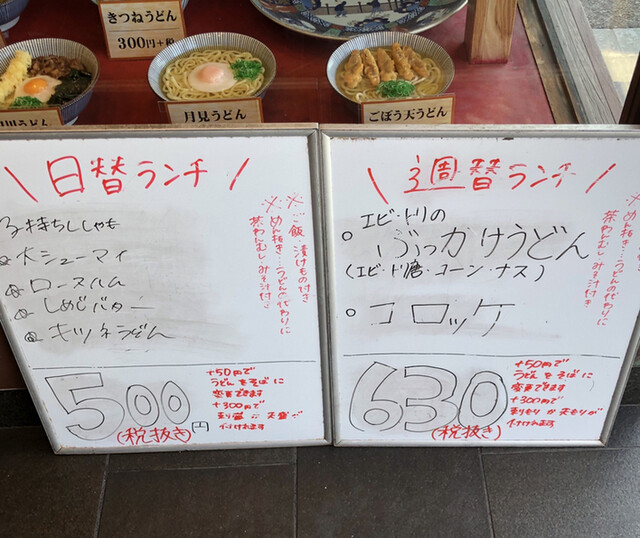 きつねうどん
300円+税
月見うどん
ごぼう天うどん
\日替ランチ/
※ご飯、漬けもの付き
※めん抜き…うどんの代わりに
茶わんむし・みそ汁付き
子持ちししゃも
大シューマイ
ロースハム
しめじバター
キツネうどん
500円
(税抜き)
+50円で
うどんをそばに
変更できます
+300円で
付けれます
\週替ランチ/
※めん抜き…うどんの代わりに
茶わんむし・みそ汁付き
エビ・ドリの
ぶっかけうどん
(エビ・ド唐・コーン・ナス)
コロッケ
630
(税抜き)
+50円で
うどんをそばに
変更できます
+300円で
付けれます